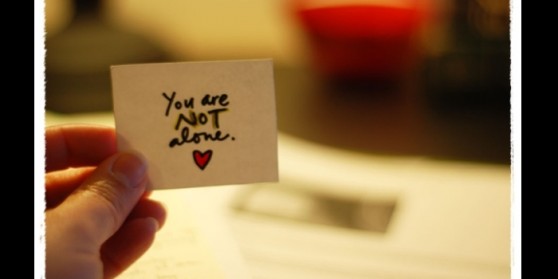 You are
NOT
alone.